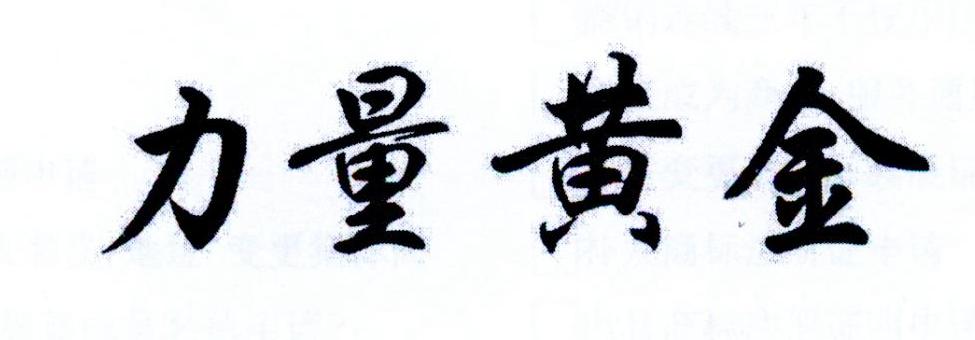 力量黄金